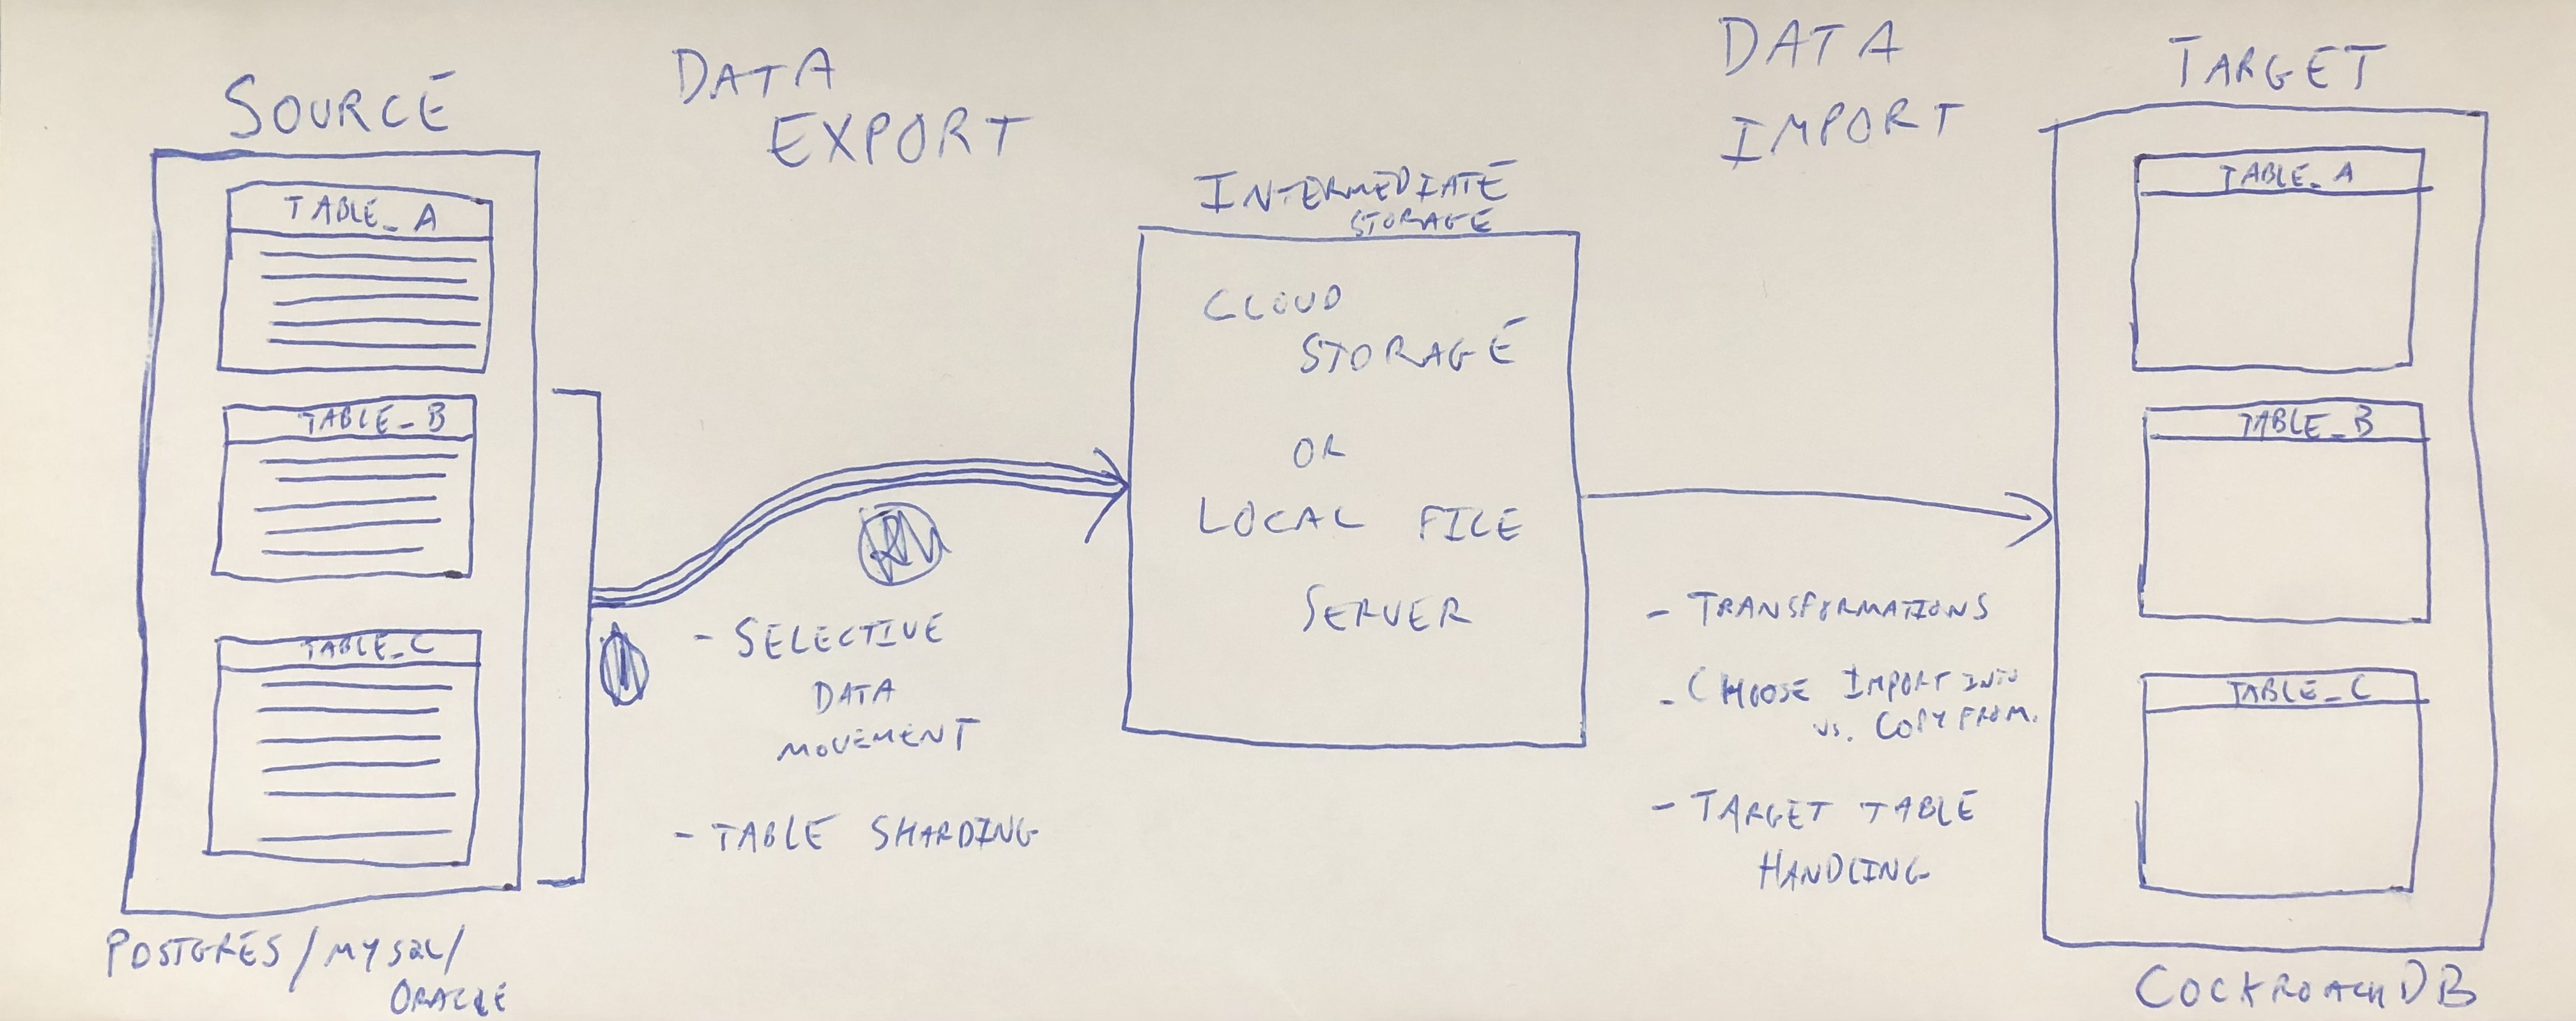 SOURCE
TABLE_A
TABLE_B
TABLE_C
POSTGRES/MYSQL/
ORACLE
DATA
EXPORT
- SELECTIVE
DATA
MOVEMENT
- TABLE SHARDING
INTERMEDIATE
STORAGE
CLOUD
STORAGE
OR
LOCAL FILE
SERVER
DATA
IMPORT
- TRANSFORMATIONS
- CHOOSE IMPORT INTO
vs. COPY FROM.
- TARGET TABLE
HANDLING
TARGET
TABLE_A
TABLE_B
TABLE_C
COCKROACHDB